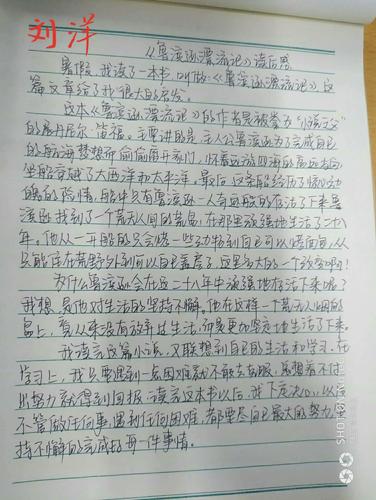 刘洋
《鲁滨逊漂流记》读后感
暑假,我读了一本书,叫做《鲁滨逊漂流记》,这
篇文章给了我很大的启发。
这本《鲁滨逊漂流记》的作者是被誉为"小说之父"
的丹尼尔·笛福。主要讲的是:主人公鲁滨逊为了完成自己
的航海梦想而偷偷离开家门,怀着远游四海的高远志向,
坐船穿越了大西洋和太平洋。最后,这条船经历了惊心动
魄的险情,船中只有鲁滨逊一人奇迹般的存活了下来,鲁
滨逊找到了一个荒无人间的荒岛,在那里顽强地生活了二十八
年。他从一开始的只会
只能住在荒野外到可以自己盖房子,这是多大的一个改变啊!
为什么鲁滨逊会在这二十八年中顽强地存活下来呢?
我想,是他对生活的坚持不懈。他在这样一个荒无人烟的
岛上,看从来没有放弃过生活,而是更加坚定地生活了下来。
我读完这篇小说,又联想到自己的生活和学习。在
学习上,我只要遇到一点困难就不敢去克服,总想着不付
出努力就得到回报。读完这本书以后,我下定决心,以后
不管做任何事,遇到任何困难,都要尽自己最大的努力,坚
持不懈的完成好每一件事情。